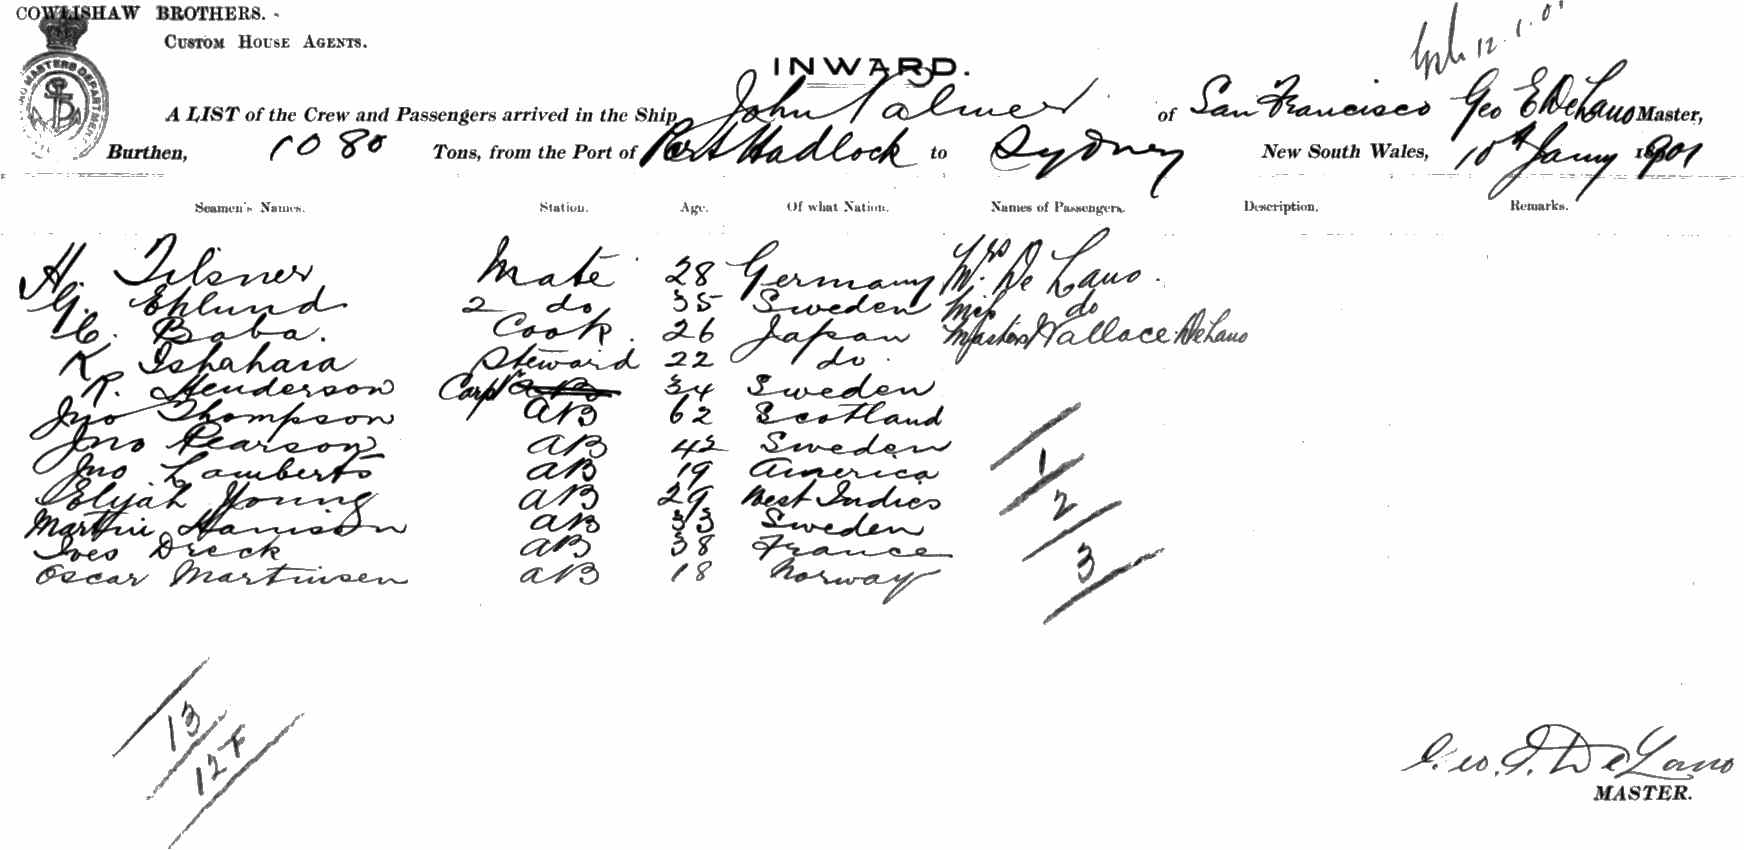 COWLISHAW BROTHERS.
CUSTOM HOUSE AGENTS.
12.1.01
MASTERS DEPARTMENT
INWARD.
A LIST of the Crew and Passengers arrived in the Ship John Palmer of San Francisco Geo E DeLano Master,
Burthen, 1080 Tons, from the Port of Port Hadlock to Sydney New South Wales, 10th Jany 1901
Seamen's Names. Station. Age. Of what Nation. Names of Passengers. Description. Remarks.
H. Tilsner Mate 28 Germany Mrs De Lano.
G. Ehlund 2 do 35 Sweden Miss do
C. Baba. Cook. 26 Japan Master Wallace DeLano
K. Ishahara Steward 22 do.
R. Henderson Carpr AB 34 Sweden
Jno Thompson AB 62 Scotland
Jno Pearson AB 42 Sweden
Jno Lamberts AB 19 America
Elijah Young AB 29 West Indies
Martin Hanison AB 33 Sweden
Ives Dreck AB 38 France
Oscar Martinsen AB 18 Norway
1
2
3
13
12 F
Geo. E. DeLano
MASTER.